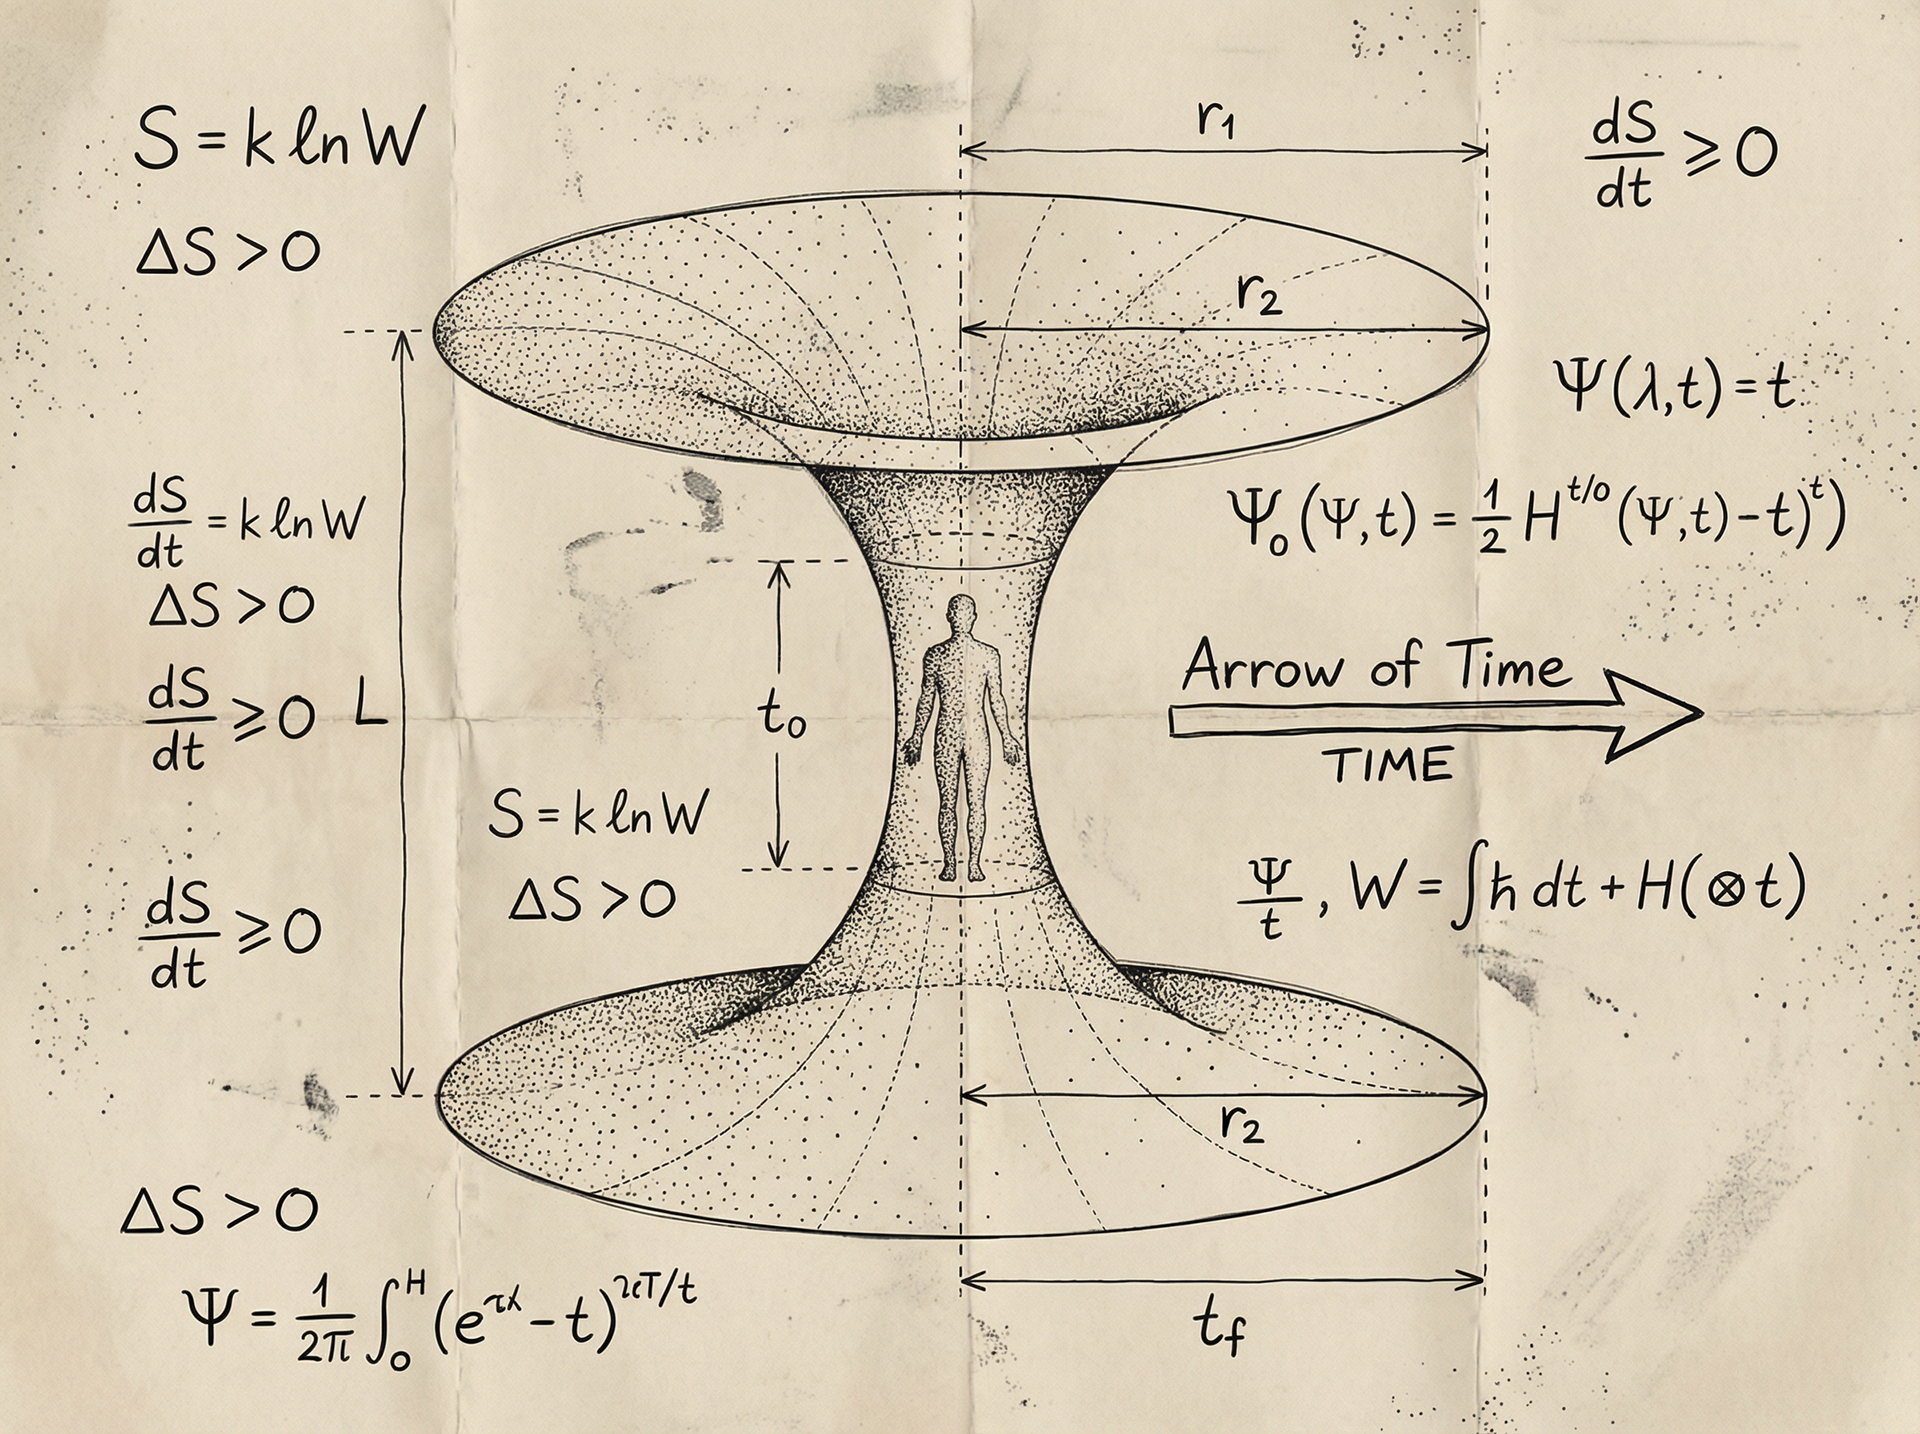 S = k ln W
ΔS > 0
r₁
dS/dt ⩾ 0
r₂
Ψ(λ,t) = t
dS/dt = k ln W
ΔS > 0
dS/dt ⩾ 0
L
Ψ₀(Ψ,t) = 1/2 H^t/0 (Ψ,t) - t)^t)
t₀
Arrow of Time
TIME
S = k ln W
ΔS > 0
dS/dt ⩾ 0
Ψ/t , W = ∫ħ dt + H(⊗t)
r₂
ΔS > 0
Ψ = 1/2π ∫₀^H (e - t)
t_f